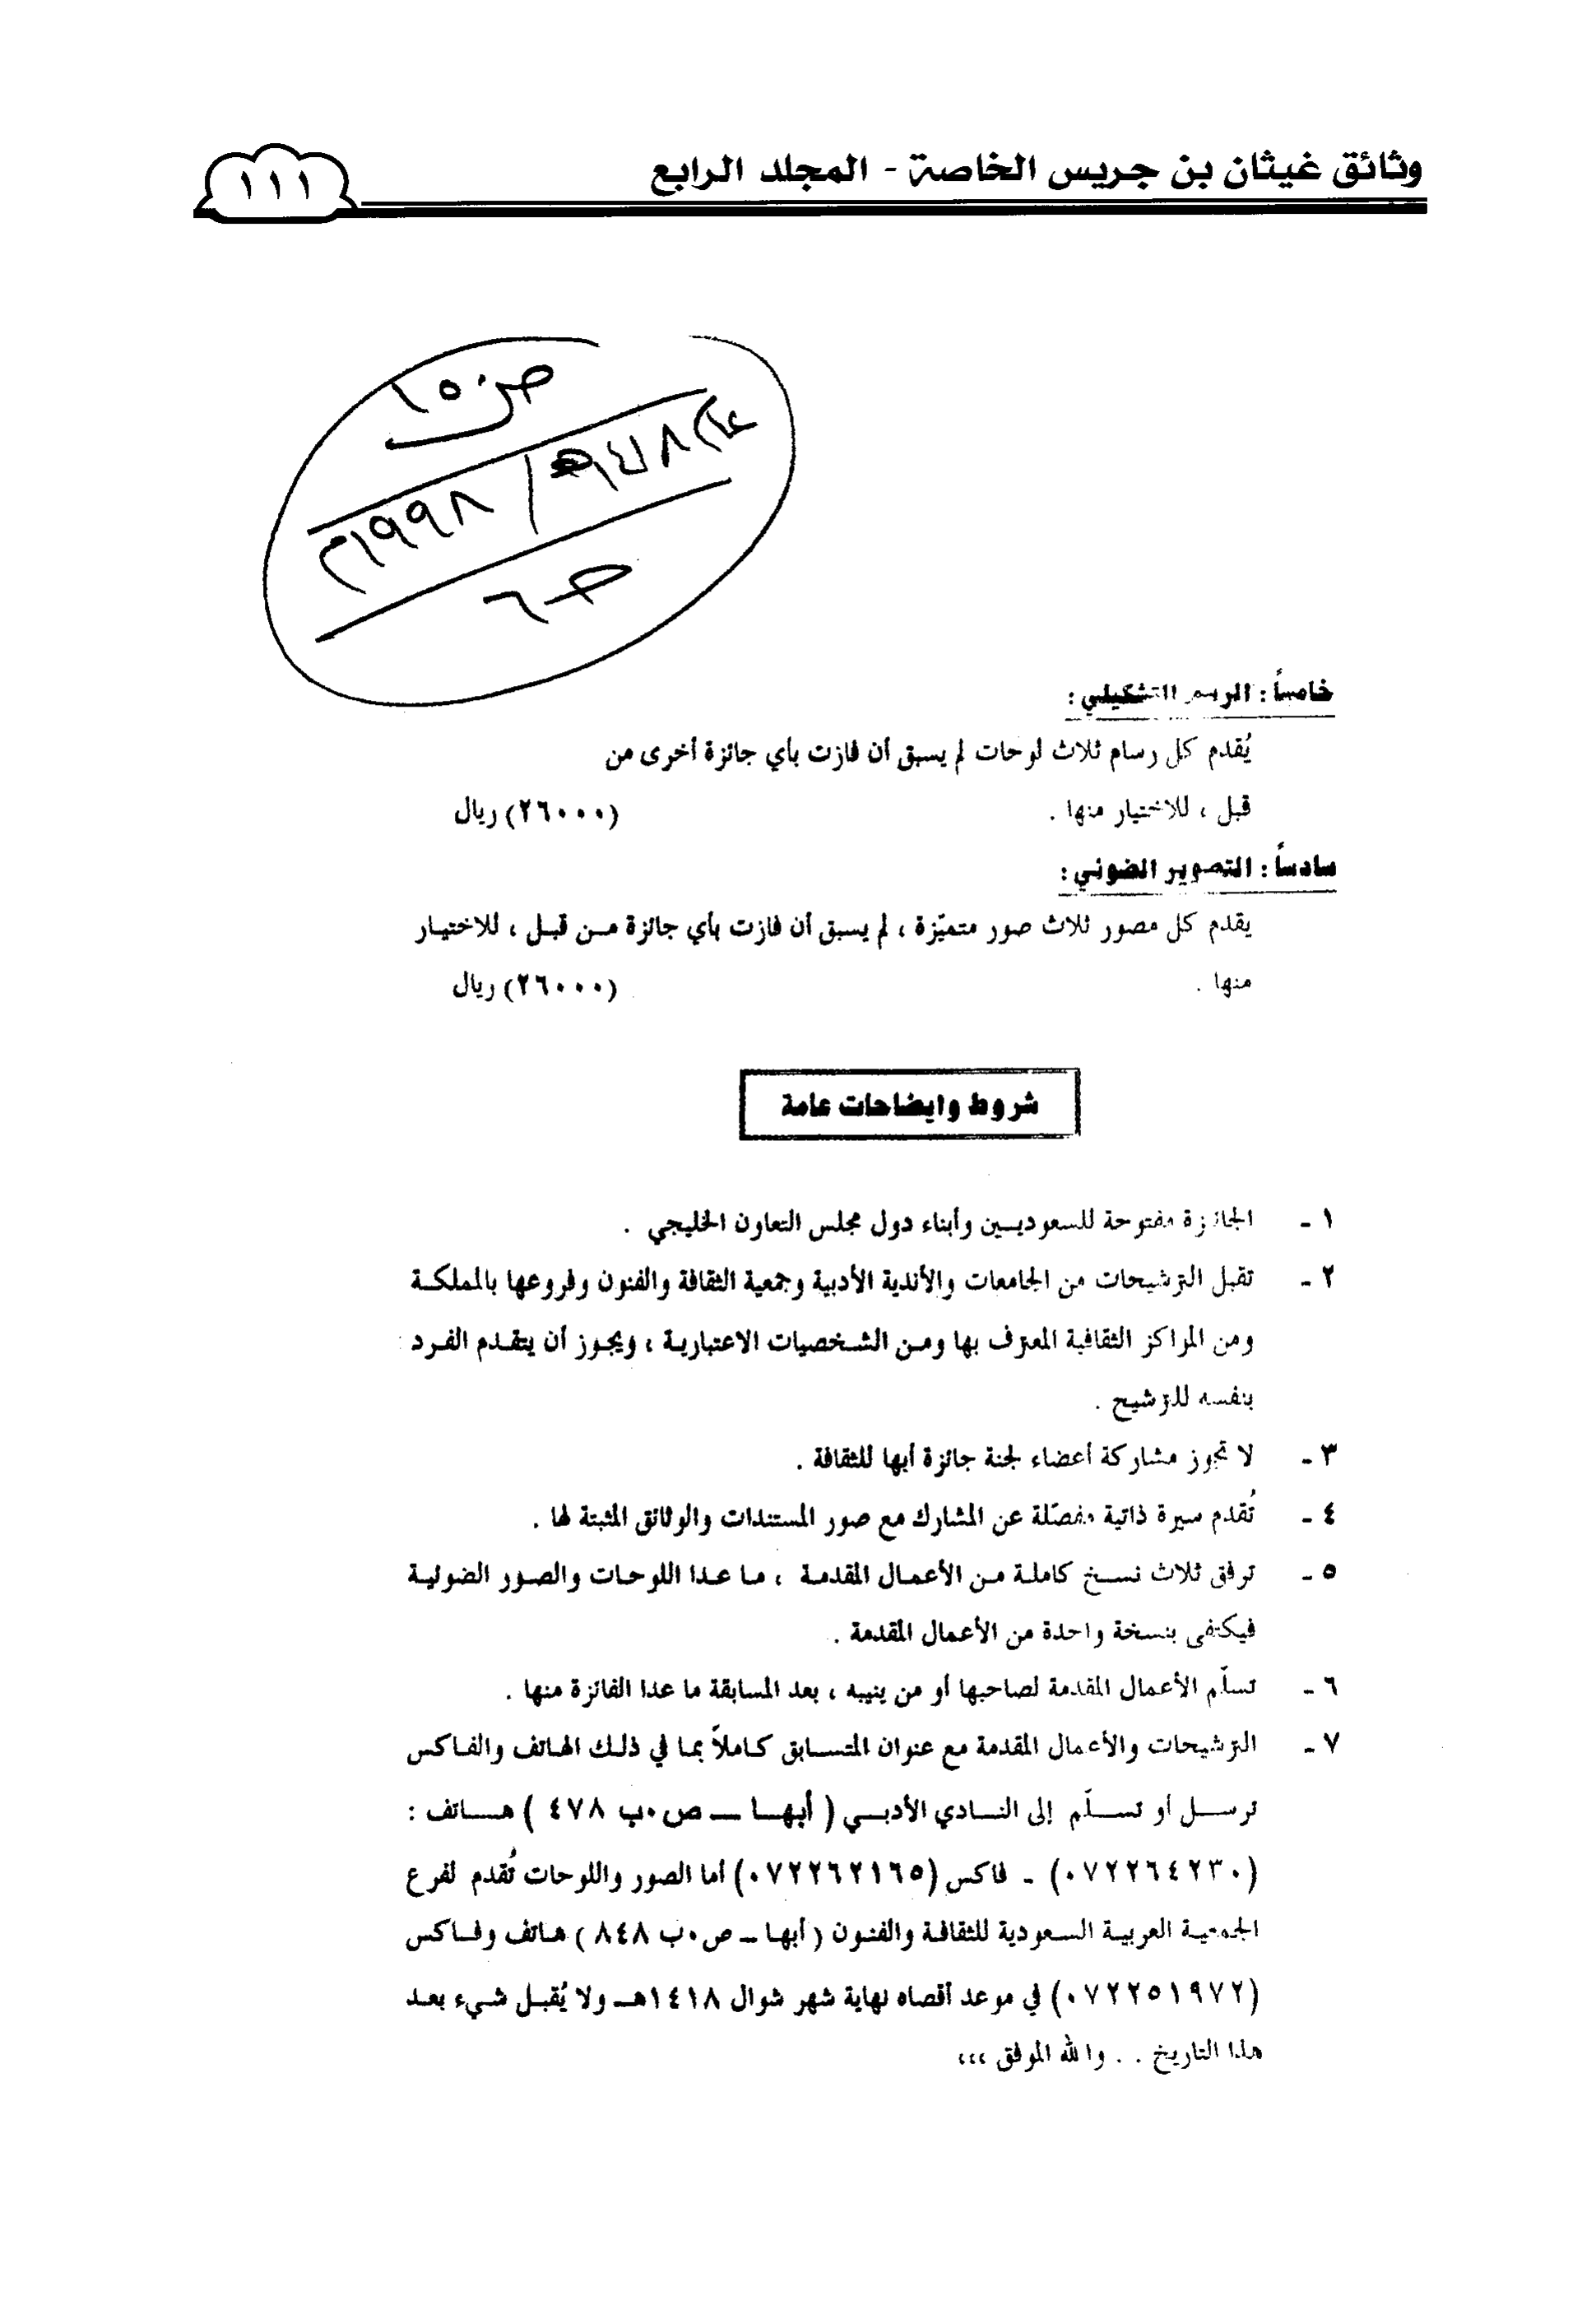 وثائق غيثان بن جريس الخاصة - المجلد الرابع
١١١
ص٦
خامساً : الرسم التشكيلي :
يُقدم كل رسام ثلاث لوحات لم يسبق أن فازت بأي جائزة أخرى من
قبل ، للاختيار منها . (٢٦٠٠٠) ريال
سادساً : التصوير الضوئي :
يقدم كل مصور ثلاث صور متميّزة ، لم يسبق أن فازت بأي جائزة من قبل ، للاختيار
منها . (٢٦٠٠٠) ريال
شروط وايضاحات عامة
١ - الجائزة مفتوحة للسعوديين وأبناء دول مجلس التعاون الخليجي .
٢ - تقبل الترشيحات من الجامعات والأندية الأدبية وجمعية الثقافة والفنون وفروعها بالمملكة
ومن المراكز الثقافية المعترف بها ومن الشخصيات الاعتبارية ، ويجوز أن يتقدم الفرد
بنفسه للترشيح .
٣ - لا تجوز مشاركة أعضاء لجنة جائزة أبها للثقافة .
٤ - تُقدم سيرة ذاتية مفصّلة عن المشارك مع صور المستندات والوثائق المثبتة لها .
٥ - ترفق ثلاث نسخ كاملة من الأعمال المقدمة ، ما عدا اللوحات والصور الضوئية
فيكتفى بنسخة واحدة من الأعمال المقدمة .
٦ - تسلّم الأعمال المقدمة لصاحبها أو من ينيبه ، بعد المسابقة ما عدا الفائزة منها .
٧ - الترشيحات والأعمال المقدمة مع عنوان المتسابق كاملاً بما في ذلك الهاتف والفاكس
ترسل أو تسلّم إلى النادي الأدبي ( أبها – ص.ب ٤٧٨ ) هاتف :
(٠٧٢٢٦٤٢٣٠) - فاكس (٠٧٢٢٦٢١٦٥) أما الصور واللوحات تُقدم لفرع
الجمعية العربية السعودية للثقافة والفنون ( أبها – ص.ب ٨٤٨ ) هاتف وفاكس
(٠٧٢٢٥١٩٧٢) في موعد أقصاه نهاية شهر شوال ١٤١٨هـ ولا يُقبل شيء بعد
هذا التاريخ . . والله الموفق ،،،